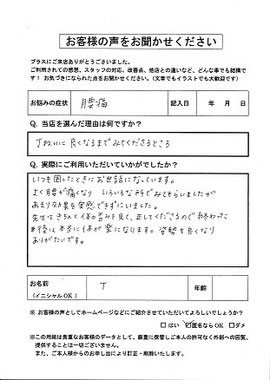 お客様の声をお聞かせください
プラスにご来店ありがとうございました。
ご利用されての感想、スタッフの対応、改善点、他店との違いなど、どんな事でも結構で
す！お気づきになられた点をお聞かせください。(文章でもイラストでも大歓迎です)
お悩みの症状 腰痛 記入日 年 月 日
Q. 当店を選んだ理由は何ですか？
丁ねいに良くなるまでみてくださるところ
Q. 実際にご利用いただいていかがでしたか？
いつも困ったときにお世話になっています。
よく腰が痛くなり いろいろな所でみてもらいましたが
あまり効果を実感できずにいました。
先生はきちんと体の歪みを見て、正してくださるので 終わった
後は本当に体が楽になります。姿勢も良くなり
ありがたいです。
お名前 T 年齢
(イニシャルOK)
※ お客様の声としてホームページなどにご紹介させていただいてよろしいでしょうか？
□はい ☑匿名ならOK □ダメ
※この用紙は貴重なお客様のデータとして、厳重に保管しご本人の許可なく外部への閲覧、
提供することは一切ございません。
また、ご本人様からのお申し出により訂正・削除いたします。